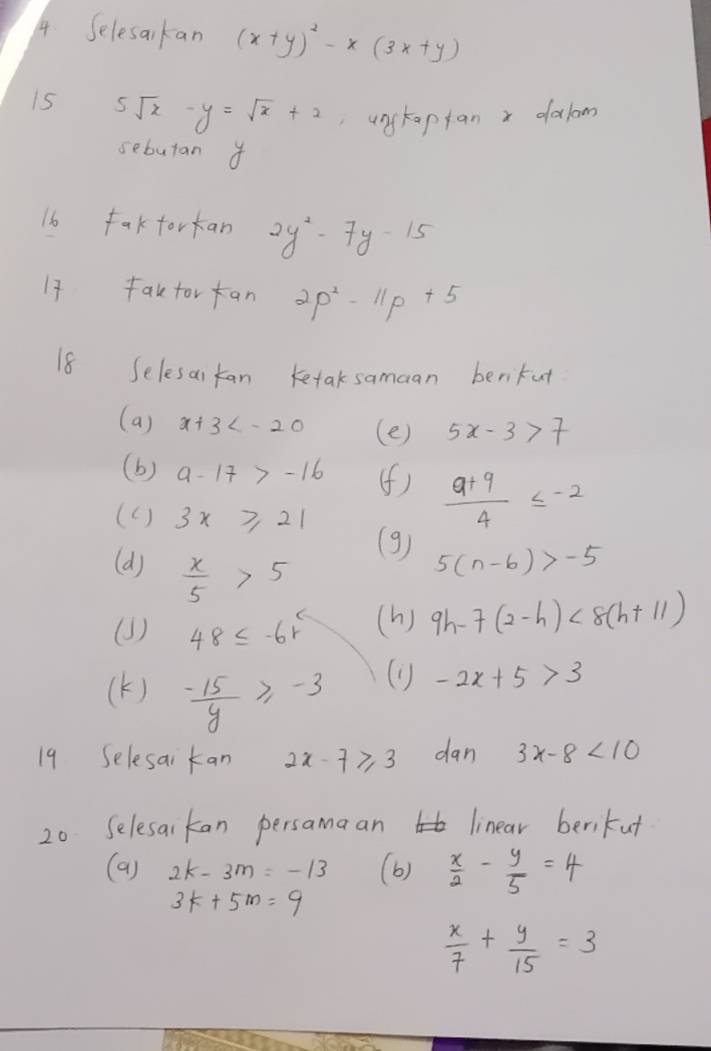 4. Selesaikan (x+y)² - x (3x+y)
15 5√x - y = √x + 2, ungkapkan x dalam
sebutan y
16 Faktorkan 2y² - 7y - 15
17 Faktorkan 2p² - 11p + 5
18 Selesaikan ketaksamaan berikut:
(a) x+3 < -20 (e) 5x - 3 > 7
(b) a - 17 > -16 (f) (a+9)/4 ≤ -2
(c) 3x ≥ 21 (g) 5(n-6) > -5
(d) x/5 > 5 (h) 9h - 7(2-h) < 8(h+11)
(j) 48 ≤ -6r (i) -2x + 5 > 3
(k) -15/y ≥ -3
19 Selesaikan 2x - 7 ≥ 3 dan 3x - 8 < 10
20. Selesaikan persamaan linear berikut:
(a) 2k - 3m = -13 (b) x/2 - y/5 = 4
3k + 5m = 9
x/7 + y/15 = 3